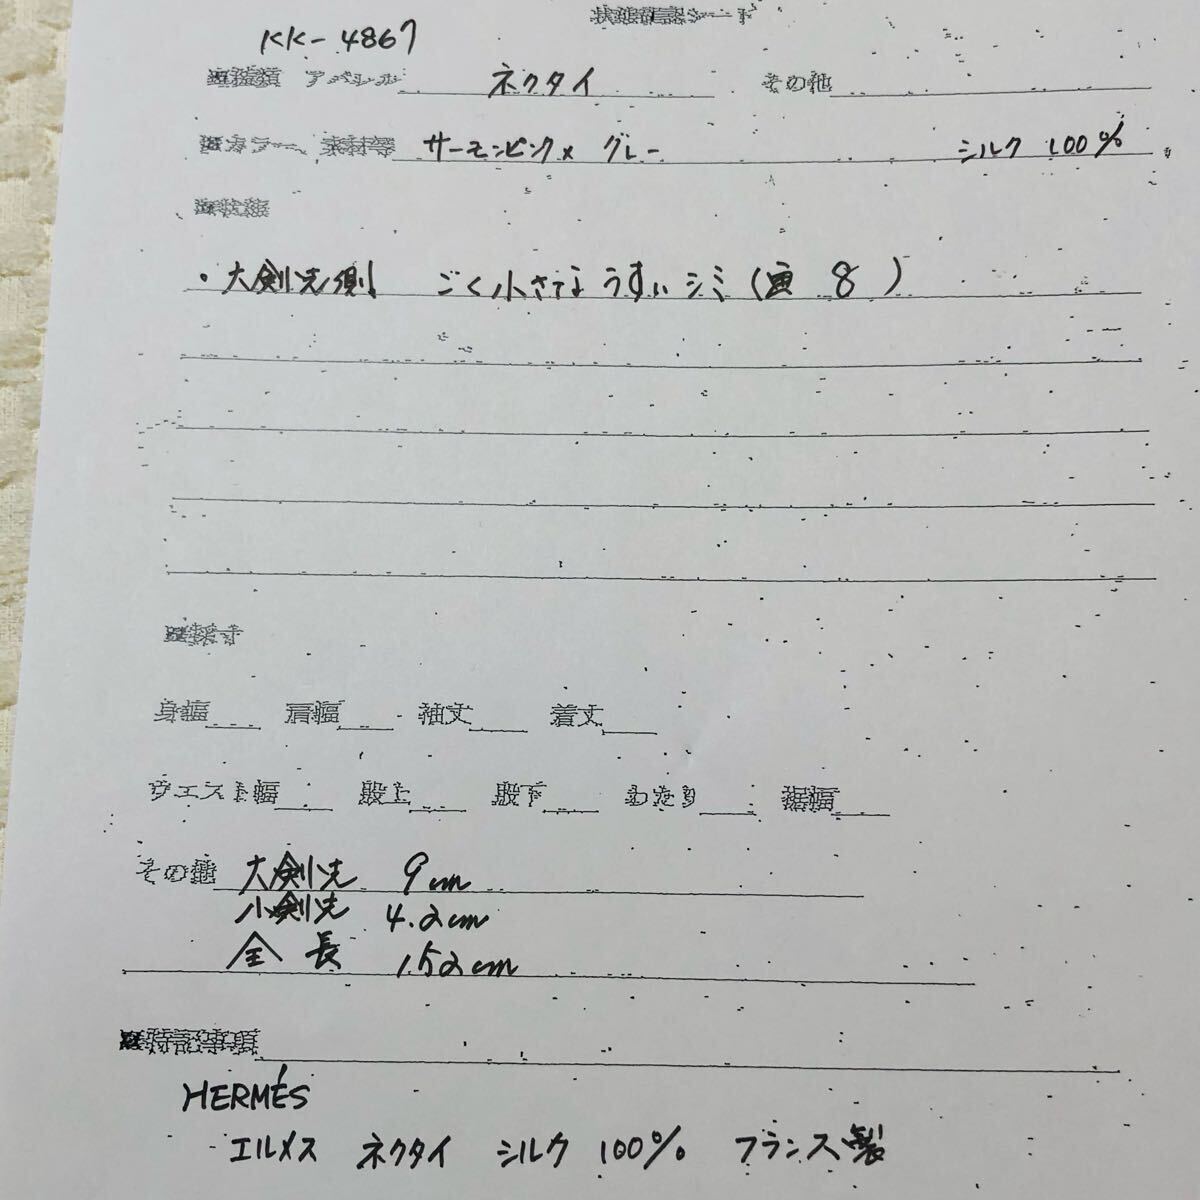 状態確認シート
KK-4867
■種類 アパレル ネクタイ その他
■カラー、素材等 サーモンピンク×グレー シルク 100%
■状態
・大剣先側 ごく小さなうすいシミ(画 8)
■採寸
身幅 肩幅 袖丈 着丈
ウエスト幅 股上 股下 わたり 裾幅
その他 大剣先 9cm
小剣先 4.2cm
全長 152cm
■特記事項
HERMÉS
エルメス ネクタイ シルク 100% フランス製